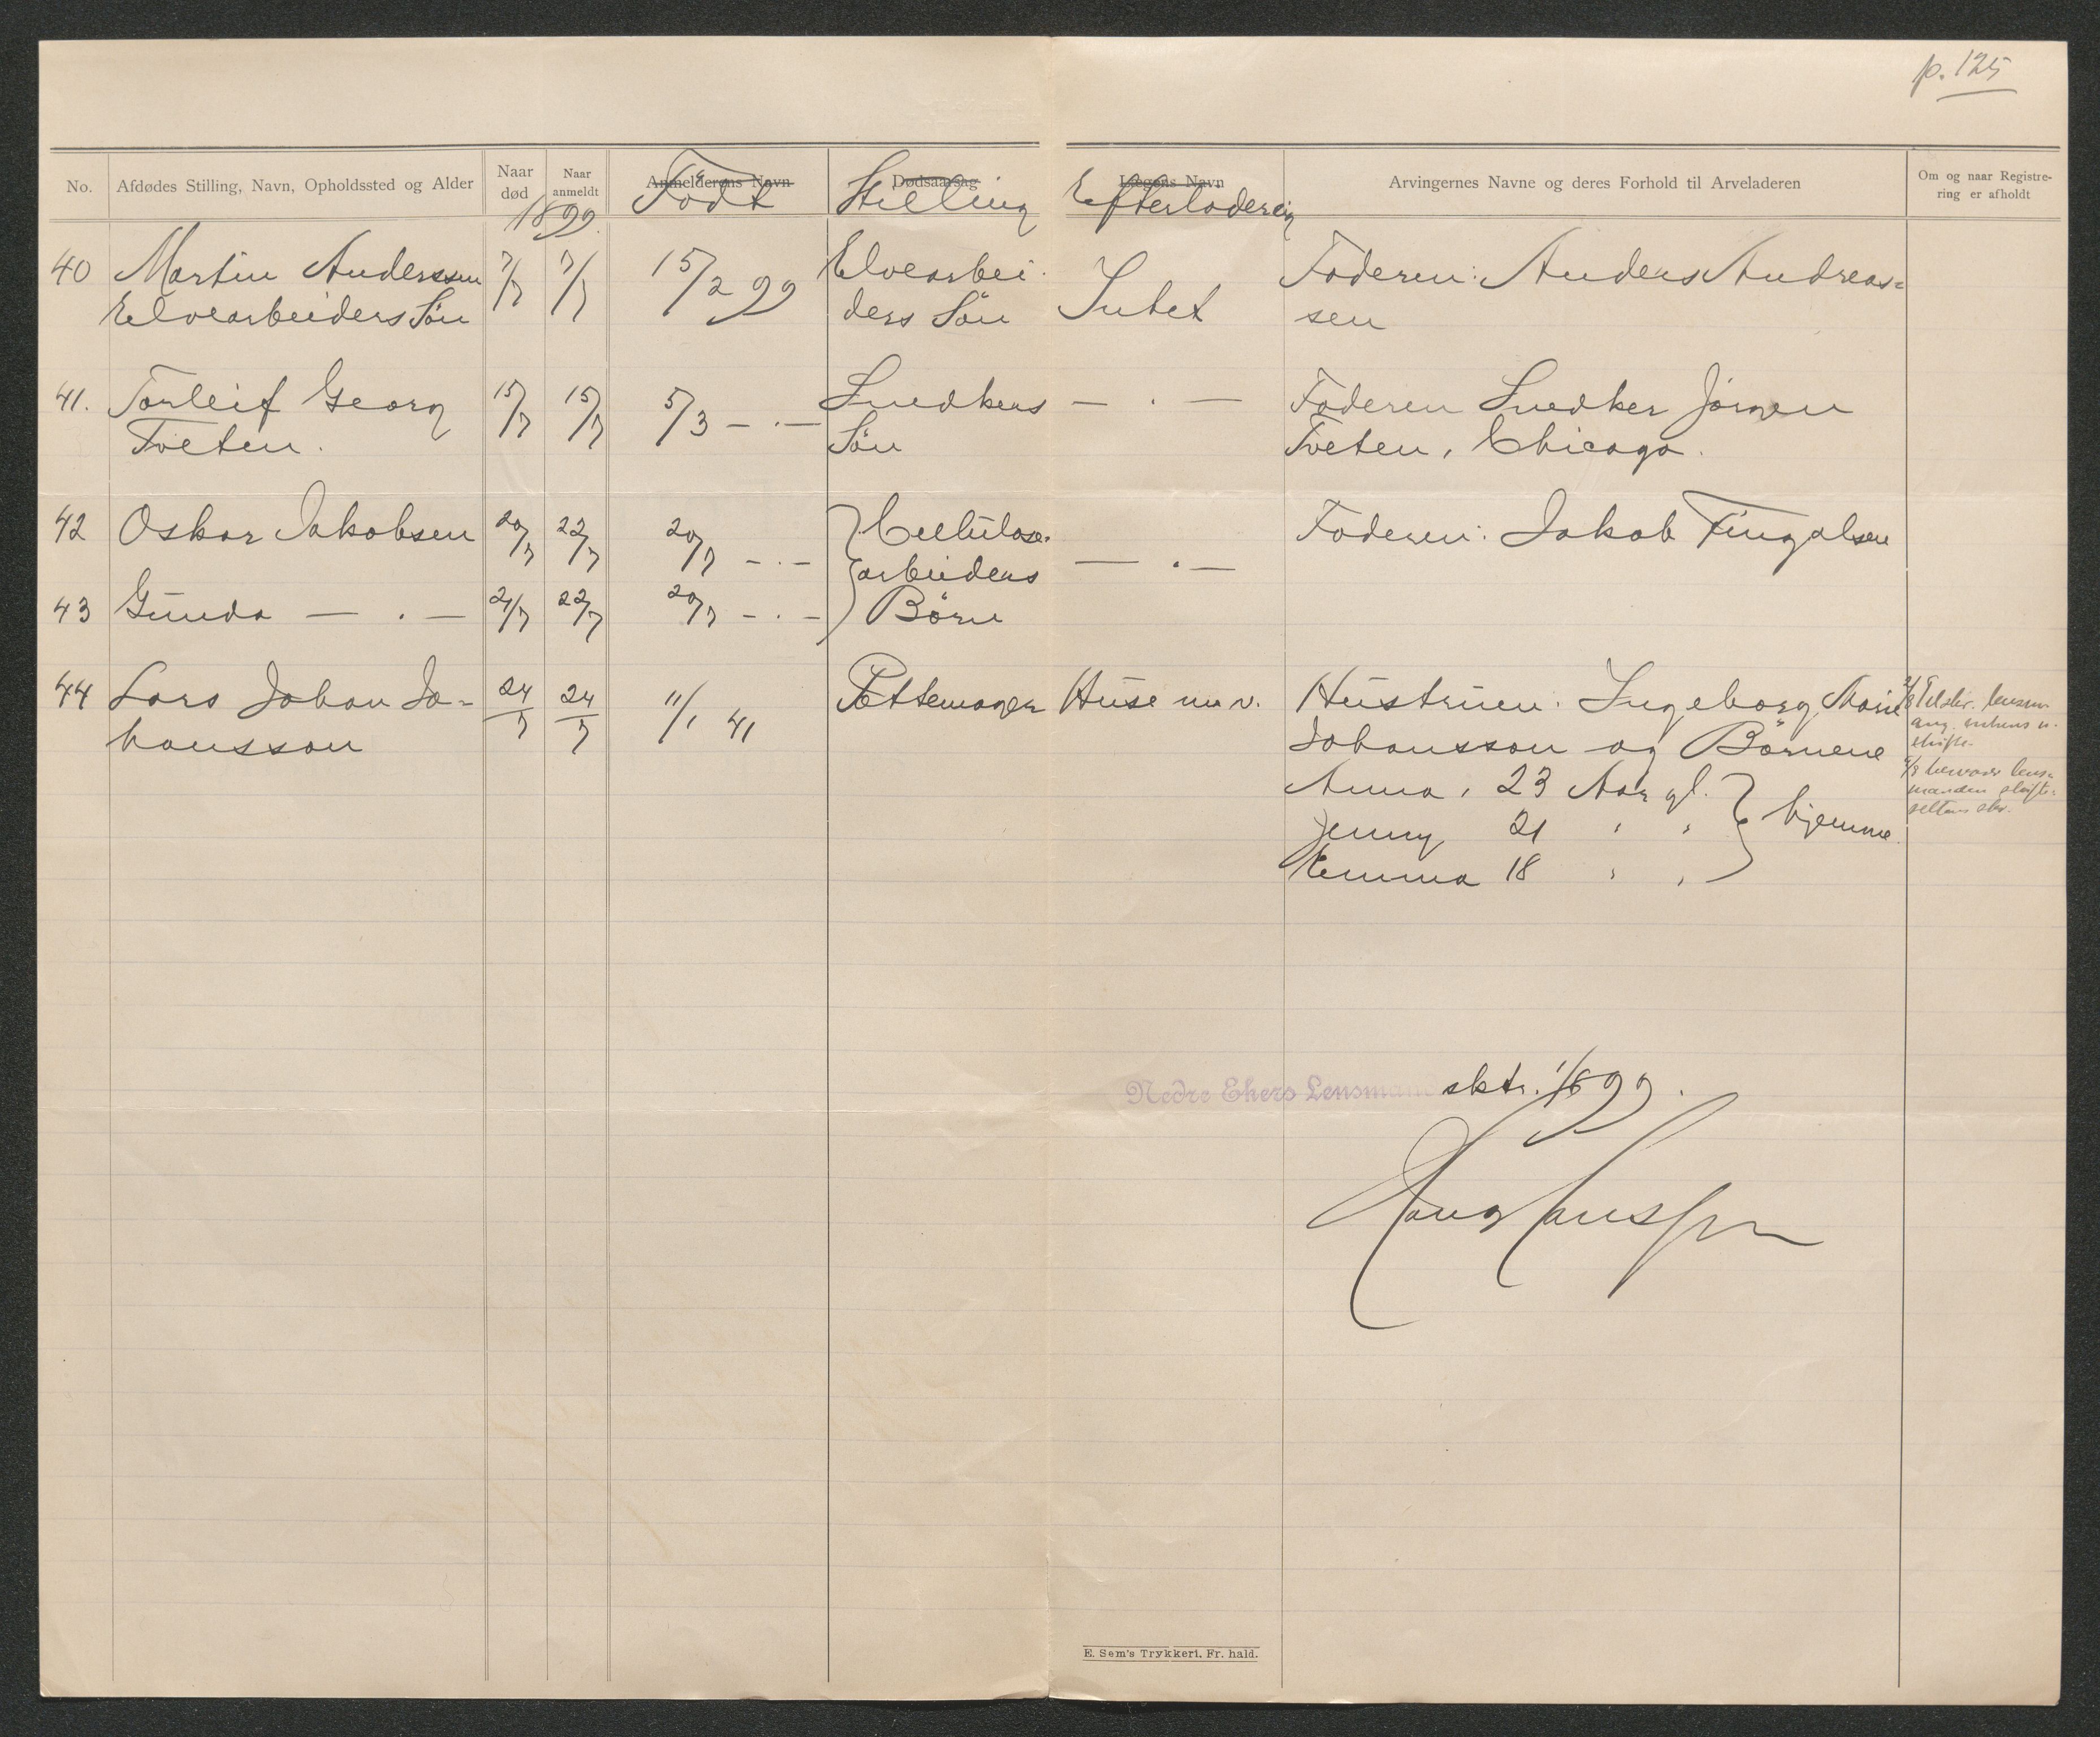 p. 125
No. Afdødes Stilling, Navn, Opholdssted og Alder Naar død Naar anmeldt Anmelderens Navn Dødsaarsag Lægens Navn Arvingernes Navne og deres Forhold til Arveladeren Om og naar Registrering er afholdt
1899. Født Stilling Efterladereig
40 Martin Anderssen 7/7 7/7 15/2 99 Elvearbei- Intet Faderen: Anders Andreas=
Elvearbeiders Søn ders Søn sen
41. Torleif Georg 15/7 15/7 5/3 - . - Snedkers - . - Faderen Snedker Jørgen
Tveten. Søn Tveten, Chicago.
42 Oskar Jakobsen 20/7 22/7 20/7 - . - Cellulose- Faderen: Jakob Fingalsen
arbeiders - . -
43 Gunda - . - 21/7 22/7 20/7 - . - Børn
44 Lars Johan Jo= 24/7 24/7 11/1 41 Pottemager Huse m. v. Hustruen: Ingeborg Marie
hansson Johansson og Børnene
Anna, 23 Aar gl.
Jenny 21 " " hjemme.
Emma 18 " "
Nedre Ekers Lensmand sktr. 1/8 99.
Hans Hanssen
E. Sem's Trykkeri. Fr. hald.